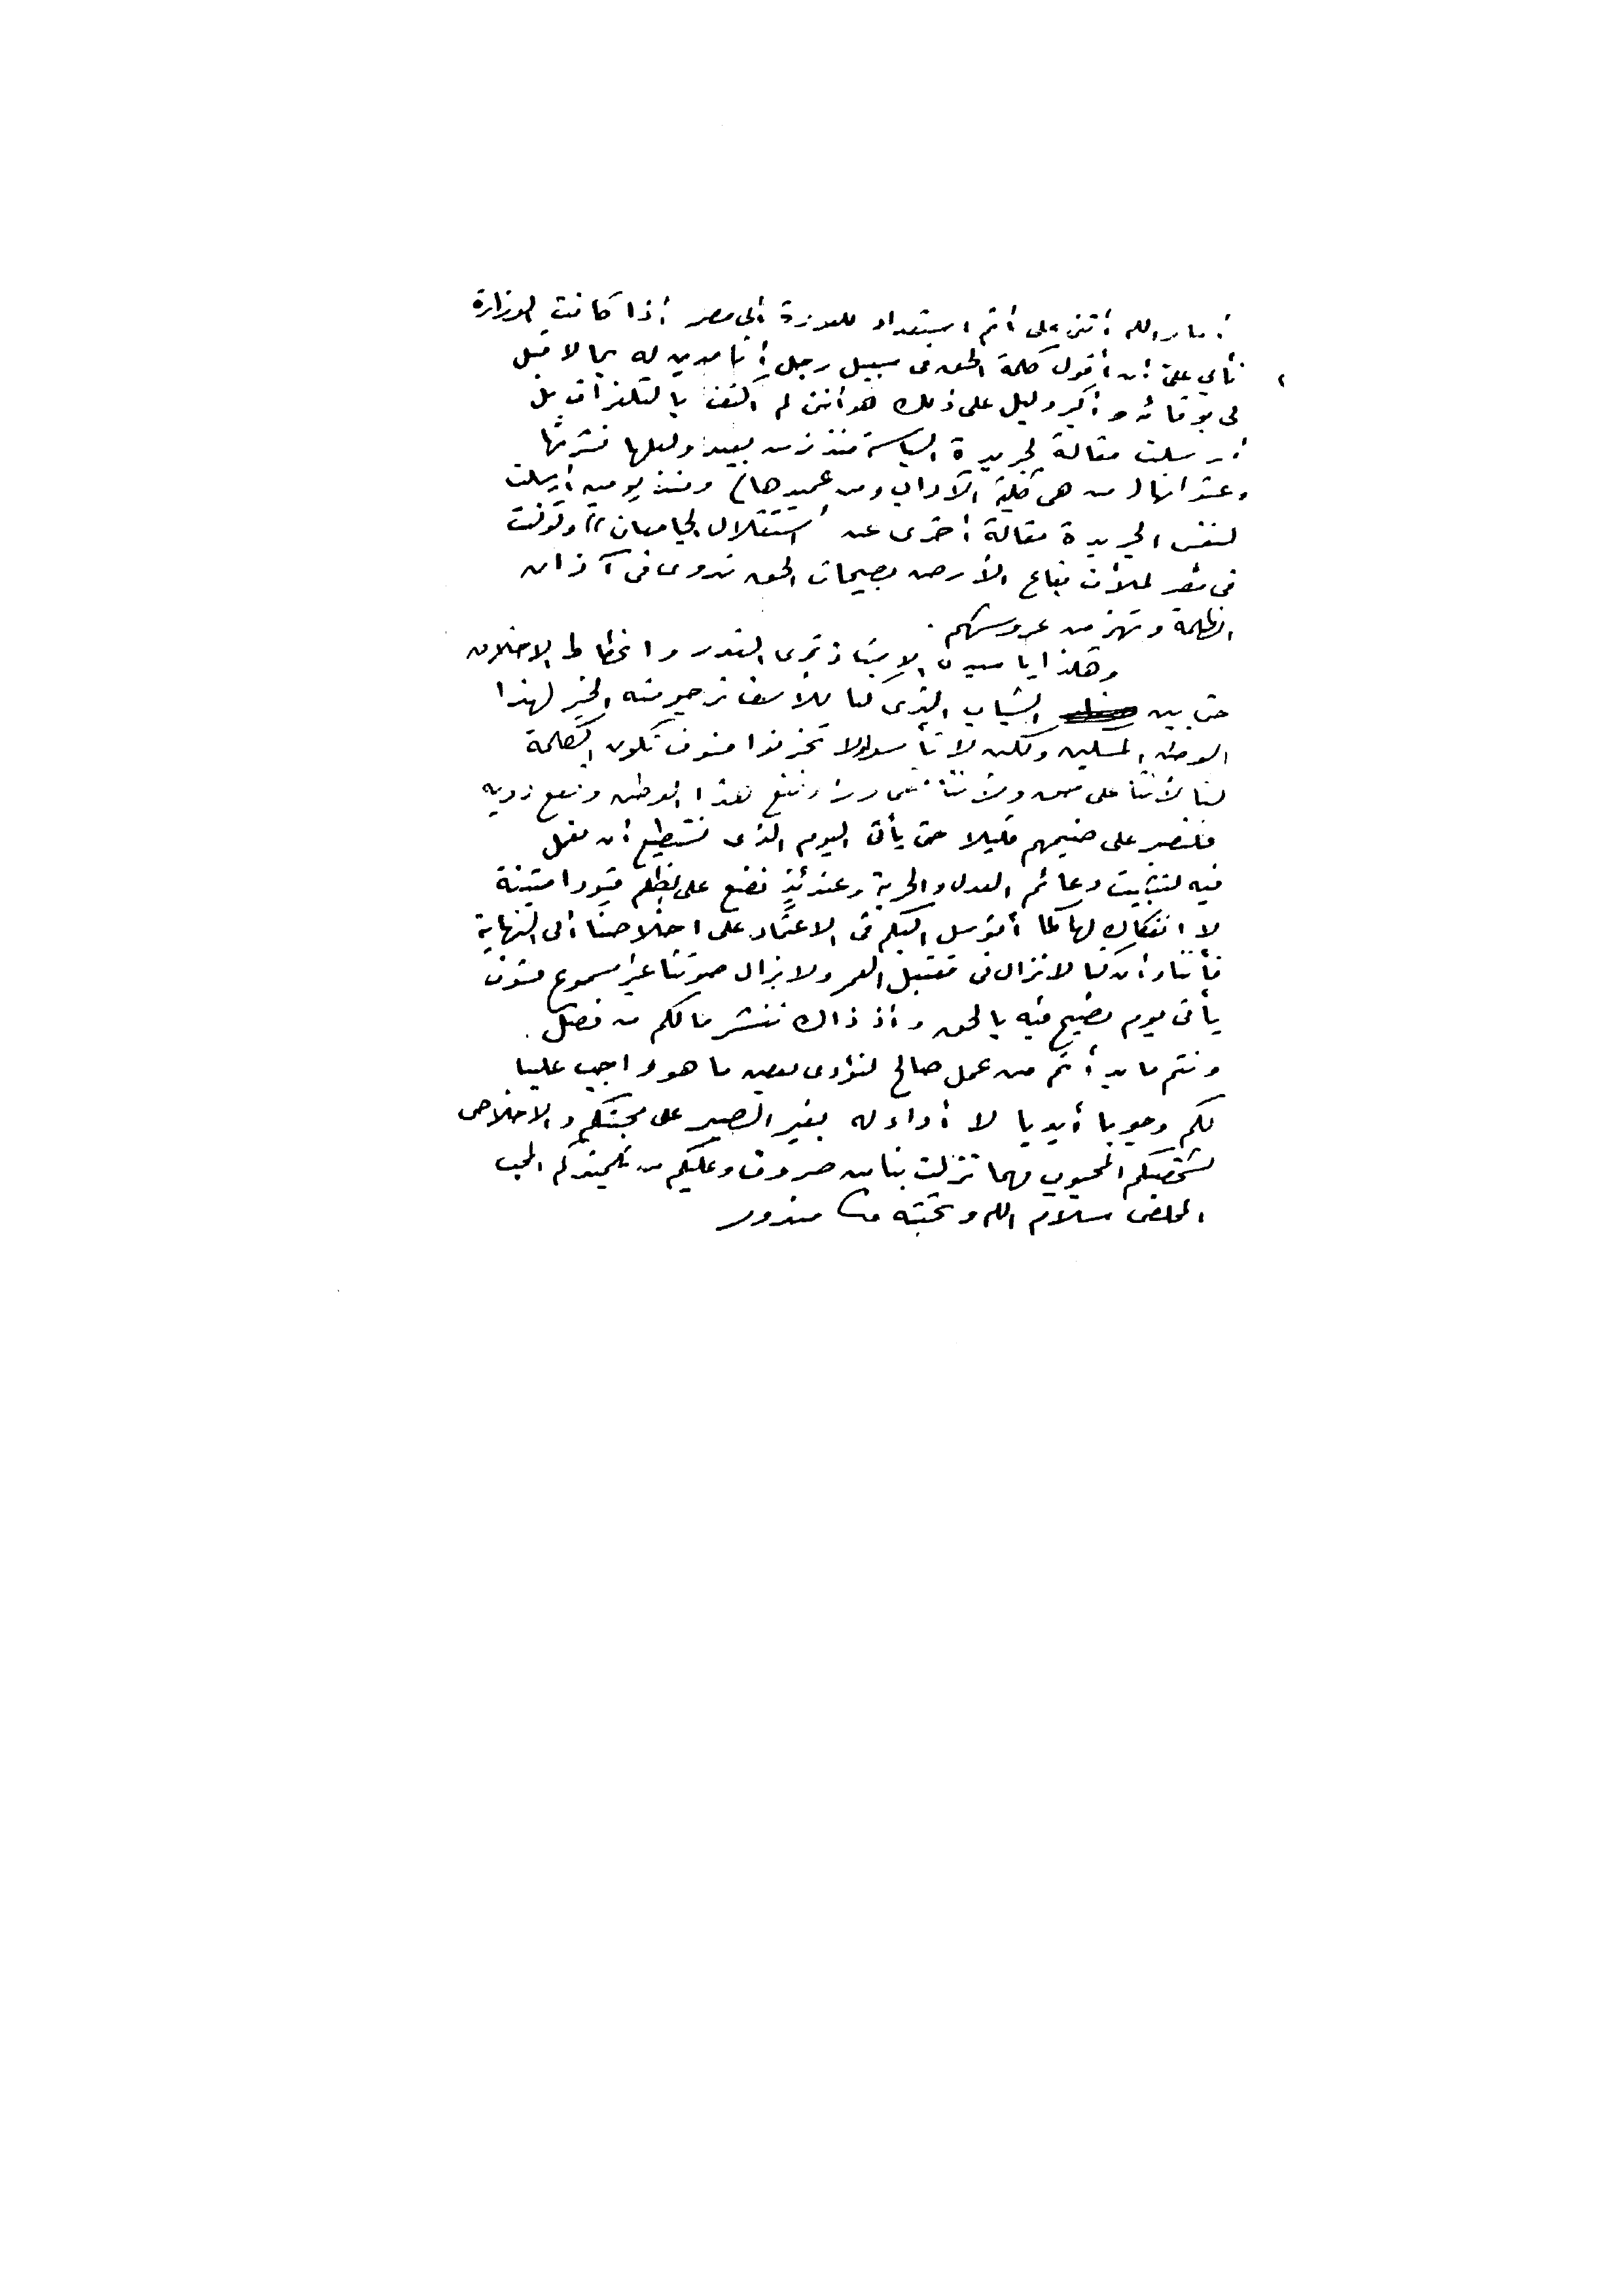 أما والله أننى على أتم استعداد للعودة ألى مصر أذا كانت الوزارة
تأبى على أن أقول كلمة الحق فى سبيل رجل أنا مدين له بما لا قبل
لى بوفائه وأكبر دليل على ذلك هو أننى لم أكتف بالتلغراف بل
أرسلت مقالة لجريدة السياسة منذ زمن بعيد ولعلها نشرتها
وعنوانها (من هى كلية الآداب ومن عميدها) ومنذ يومين أرسلت
لنفس الجريدة مقالة أخرى عن "استقلال الجامعات" ولو كنت
فى مصر لملأت بقاع الأرض بصيحات الحق تدوى فى آذان
الظلمة وتهز من عروشهم .
وهكذا يا سيدى الاستاذ نرى الغدر وانحطاط الاخلاق
حتى بين الشباب الذى كنا للأسف نرجو منه الخير لهذا
الوطن المسكين ولكن لا تيأسوا ولا تحزنوا فسوف تكون الكلمة
لنا لأننا على حق ولأننا أردنا نفع هذا الوطن ونفع ذويه
فلنصبر على ضيمهم قليلا حتى يأتى اليوم الذى نستطيع أن نعمل
فيه لتثبيت دعائم العدل والحرية وعندئذٍ نضع على الظلم قيودا متينة
لا انفكاك لها كما أتوسل اليكم فى الاعتماد على اخلاصنا ألى النهاية
فأننا وأن كنا لا نزال فى مقتبل العمر ولا يزال صوتنا غير مسموع فسوف
يأتى يوم نصيح فيه بالحق وأذ ذاك ننشر مالكم من فضل .
ونتم ما بدأتم من عمل صالح لنؤدى بعض ما هو واجب علينا
لكم وجوبا أبديا لا أداء له بغير الصبر على محبتكم والاخلاص
لشخصكم المحبوب مهما نزلت بنا من صروف وعليكم من تلميذكم المحب
المخلص سلام الله وتحيته مندور